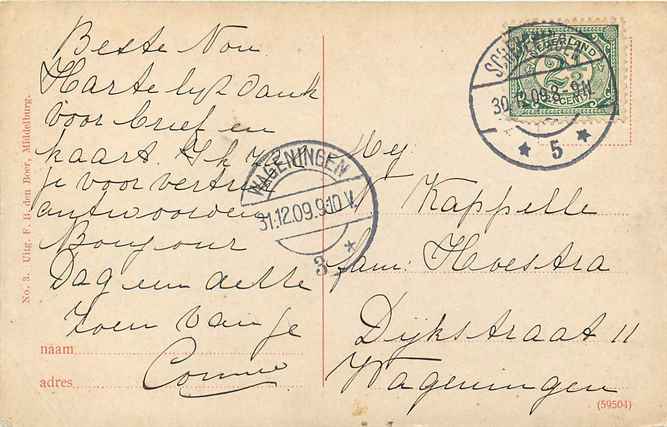 Beste Nou
Hartelijk dank
voor brief en
kaart. Ik zal
je voor vertrek
antwoorden
Bonjour
Dag een dette
zoen van je
naam
Connie
adres
No. 3. Uitg. F. B. den Boer, Middelburg.
WAGENINGEN
31.12.09.9-10 V.
3
NEDERLAND
2½
CENT
30.12.09.8-9N
5
Mej.
Kappelle
fam: Hoestra
Dijkstraat 11
Wageningen
(59504)